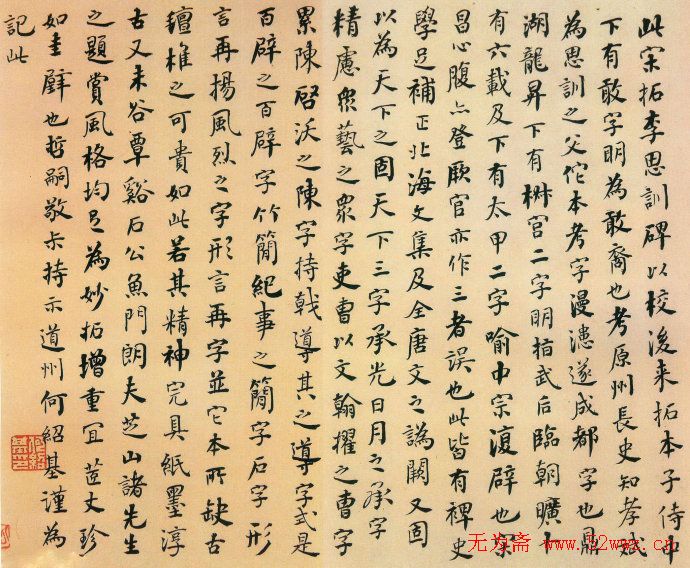 此宋拓李思訓碑以校後来拓本子侍中
下有敢字明為敢裔也考原州長史知孝斌
為思訓之父佗本考字漫漶遂成都字也鼎
湖龍昇下有椒宫二字明指武后臨朝曠
有六載及下有太甲二字喻中宗復辟也宗
昌心腹亦登厥官亦作三者誤也此皆有裨史
學足補正北海文集及全唐文之譌闕又固
以為天下之固天下三字承光日月之承字
精慮衆藝之衆字吏曹以文翰擢之曹字
累陳啓沃之陳字持戟導其之導字式是
百辟之百辟字竹簡紀事之簡字石字形
言再揚風烈之字形言再字並它本所缺古
鐘椎之可貴如此若其精神完具紙墨淳
古又未谷覃谿石公魚門朗夫芝山諸先生
之題賞風格均足為妙拓增重宜莲丈珍
如圭璧也哲嗣敬止持示道州何紹基謹為
記此
无为斋 www.52wwz.cn